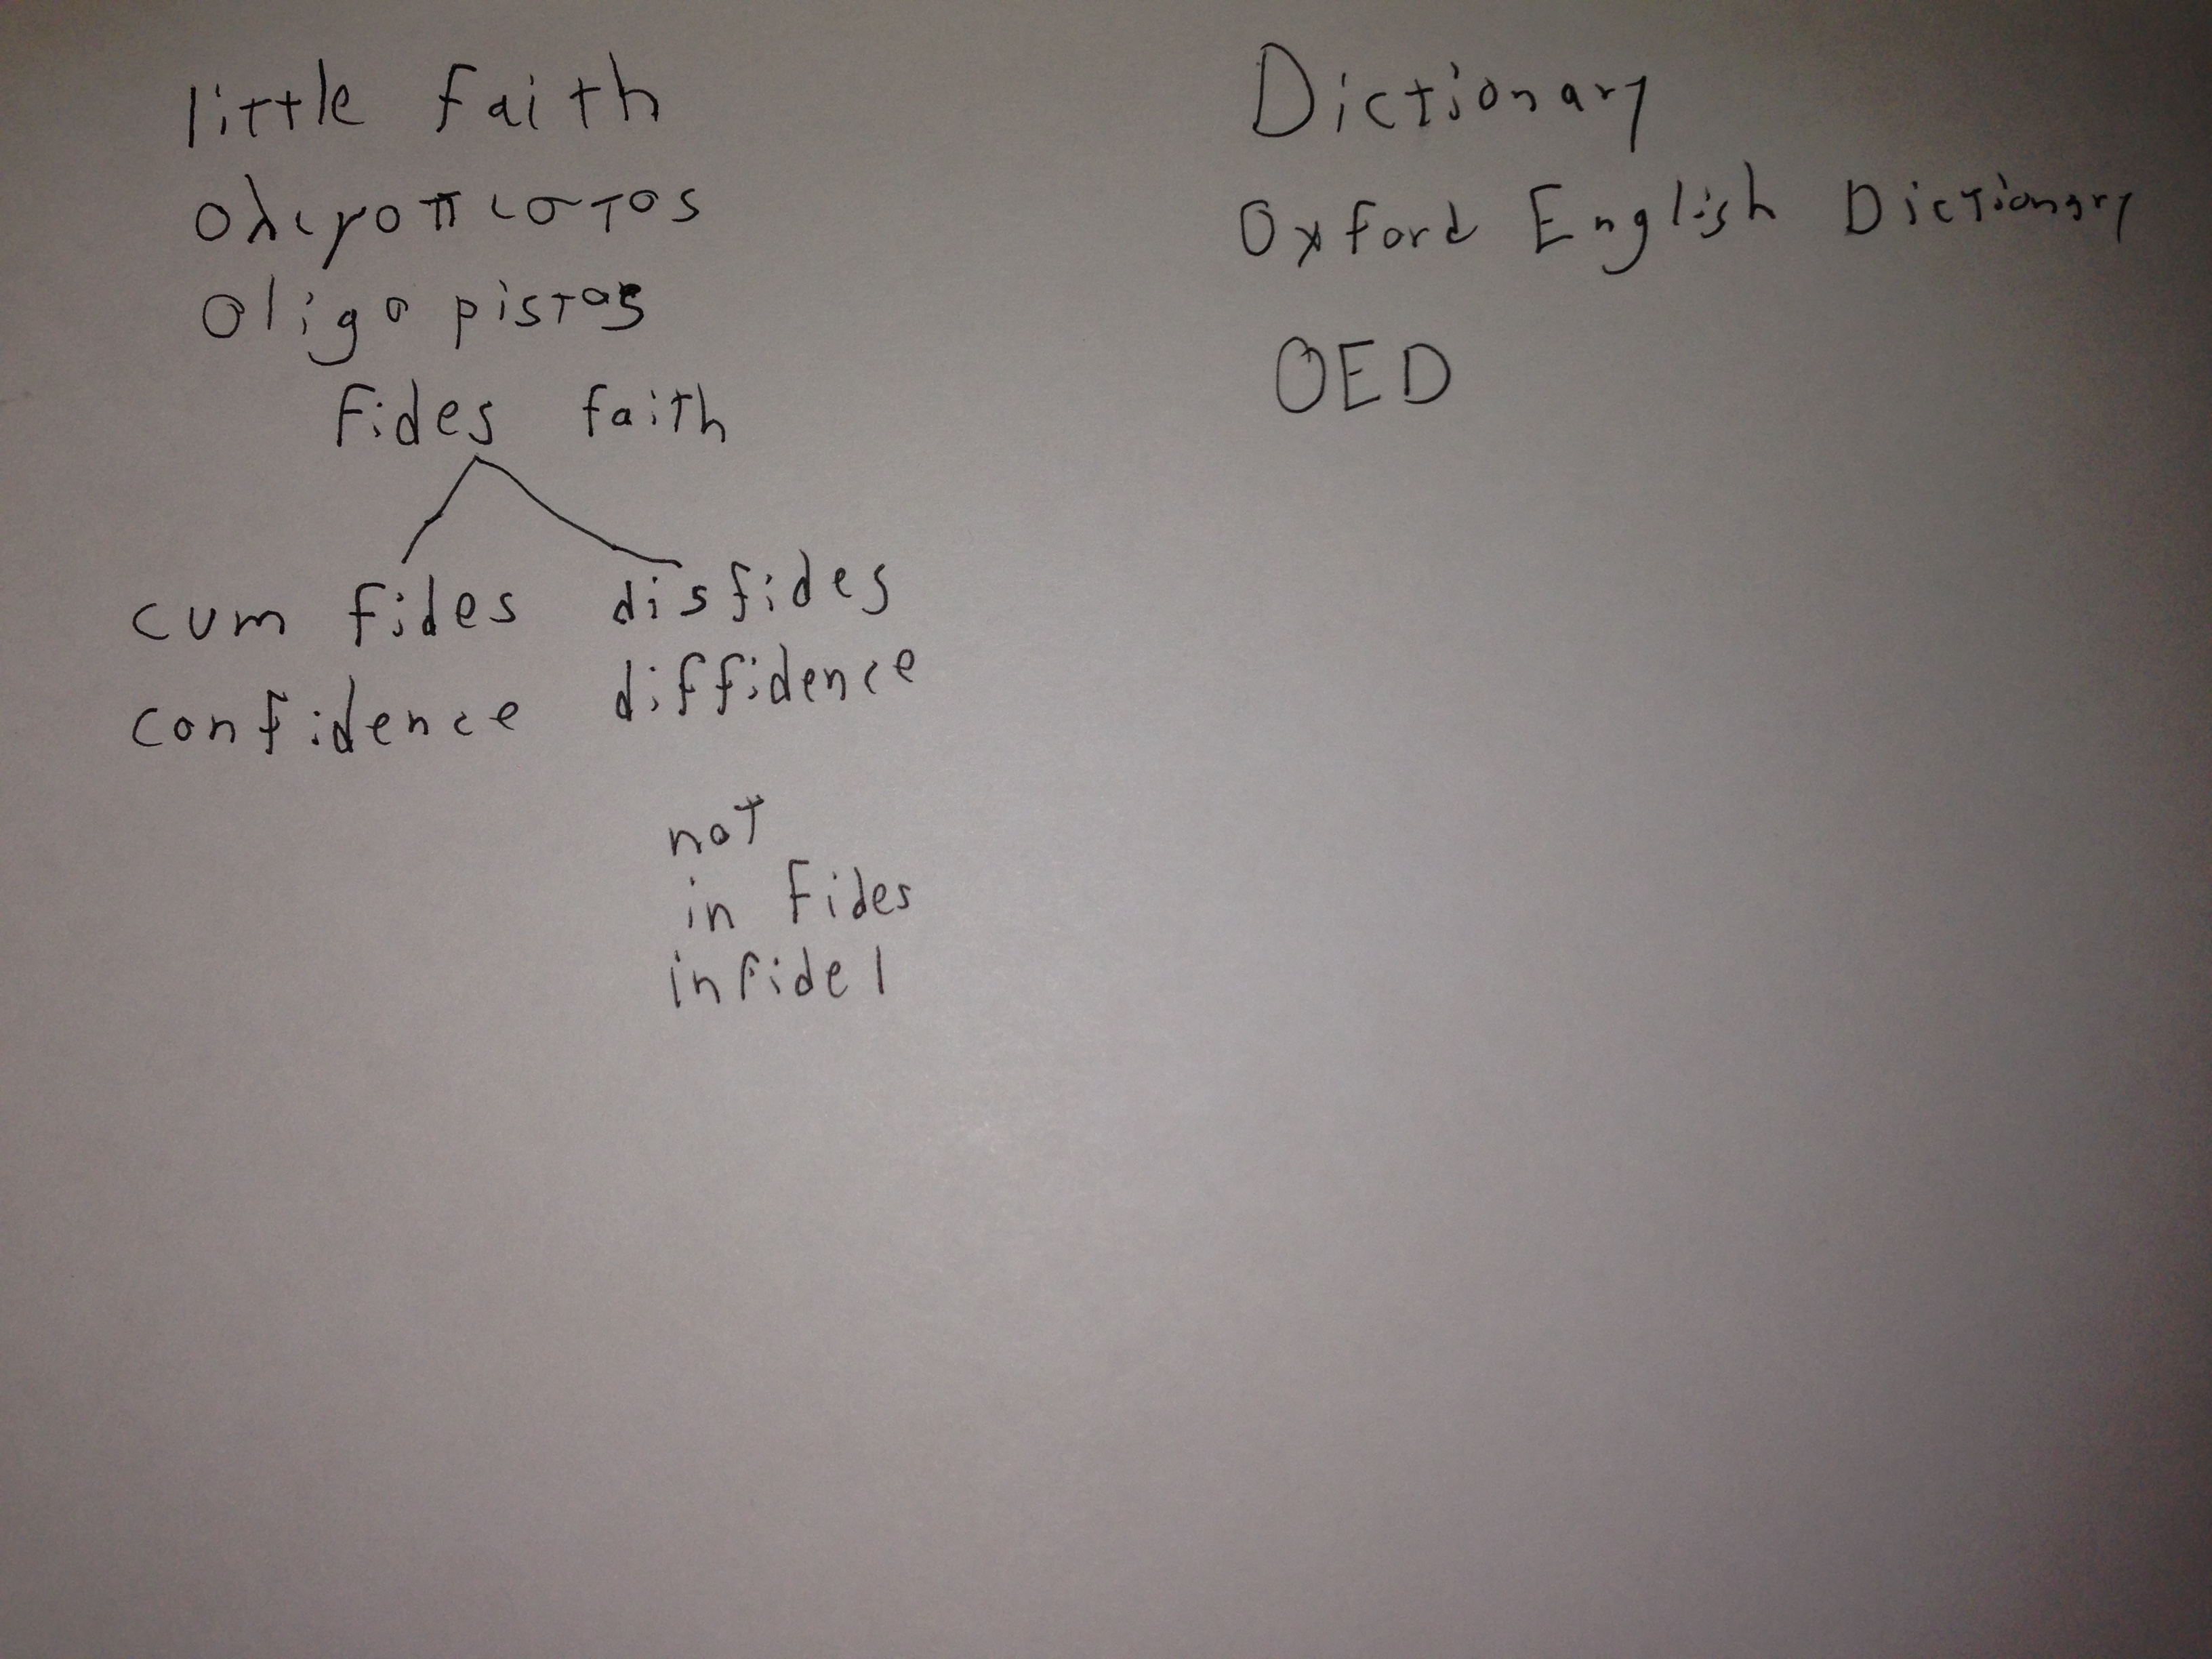 little faith
ολιγοπιστος
oligo pistos
Fides faith
cum fides disfides
confidence diffidence
not
in Fides
infidel
Dictionary
Oxford English Dictionary
OED